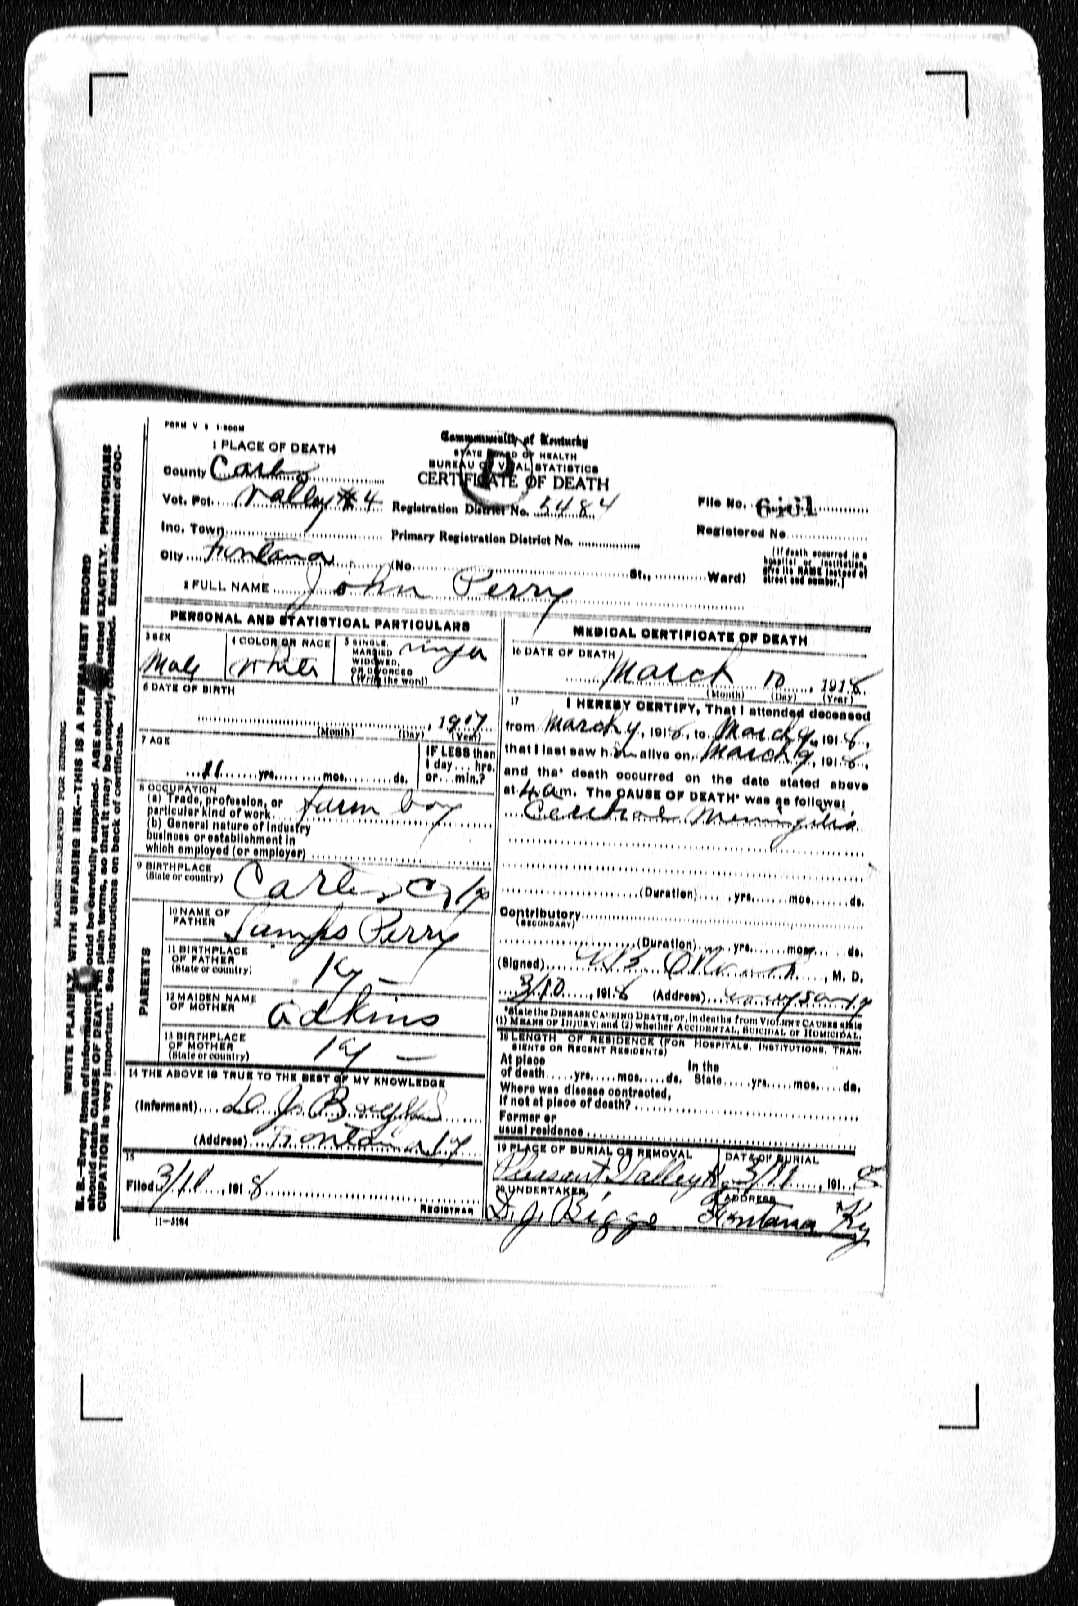 FORM V S 1-500M
1 PLACE OF DEATH
County
Vot. Pct. Valley #4
Inc. Town
City Fontana (No. St., Ward)
Commonwealth of Kentucky
STATE BOARD OF HEALTH
BUREAU OF VITAL STATISTICS
CERTIFICATE OF DEATH
Registration District No. 5484
Primary Registration District No.
File No.
Registered No
(If death occurred in a hospital or institution, give its NAME instead of street and number.)
2 FULL NAME John Perry
PERSONAL AND STATISTICAL PARTICULARS
3 SEX
Male
4 COLOR OR RACE
White
5 SINGLE, MARRIED, WIDOWED, OR DIVORCED (Write the word)
6 DATE OF BIRTH
, 1907
(Month) (Day) (Year)
7 AGE
11 yrs. mos. ds.
IF LESS than 1 day hrs. or min.?
8 OCCUPATION
(a) Trade, profession, or particular kind of work farm boy
(b) General nature of industry business or establishment in which employed (or employer)
9 BIRTHPLACE
(State or country) Carter Co Ky
PARENTS
10 NAME OF FATHER Perry
11 BIRTHPLACE OF FATHER (State or country) Ky —
12 MAIDEN NAME OF MOTHER Adkins
13 BIRTHPLACE OF MOTHER (State or country) Ky —
14 THE ABOVE IS TRUE TO THE BEST OF MY KNOWLEDGE
(Informant)
(Address) Fontana Ky
15
Filed 3/10, 1918
REGISTRAR
11—3184
MEDICAL CERTIFICATE OF DEATH
16 DATE OF DEATH
March 10, 1918
(Month) (Day) (Year)
17 I HEREBY CERTIFY, That I attended deceased
from March 4, 1918, to March 9, 1918,
that I last saw him alive on March 9, 1918,
and that death occurred on the date stated above
at 4 am. The CAUSE OF DEATH* was as follows:
(Duration) yrs. mos. ds.
Contributory
(SECONDARY)
(Duration) yrs. mos. ds.
(Signed) , M. D.
3/10, 1918 (Address)
*State the DISEASE CAUSING DEATH, or, in deaths from VIOLENT CAUSES state
(1) MEANS OF INJURY; and (2) whether ACCIDENTAL, SUICIDAL or HOMICIDAL.
18 LENGTH OF RESIDENCE (FOR HOSPITALS, INSTITUTIONS, TRANSIENTS OR RECENT RESIDENTS)
At place of death yrs. mos. ds. In the State yrs. mos. ds.
Where was disease contracted,
If not at place of death?
Former or
usual residence
19 PLACE OF BURIAL OR REMOVAL
Pleasant Valley Ky
DATE OF BURIAL
3/11, 1918
20 UNDERTAKER
D. J. Biggs
ADDRESS
Fontana Ky
MARGIN RESERVED FOR BINDING
WRITE PLAINLY, WITH UNFADING INK—THIS IS A PERMANENT RECORD
N. B.—Every item of information should be carefully supplied. AGE should be stated EXACTLY. PHYSICIANS
should state CAUSE OF DEATH in plain terms, so that it may be properly classified. Exact statement of OC-
CUPATION is very important. See instructions on back of certificate.